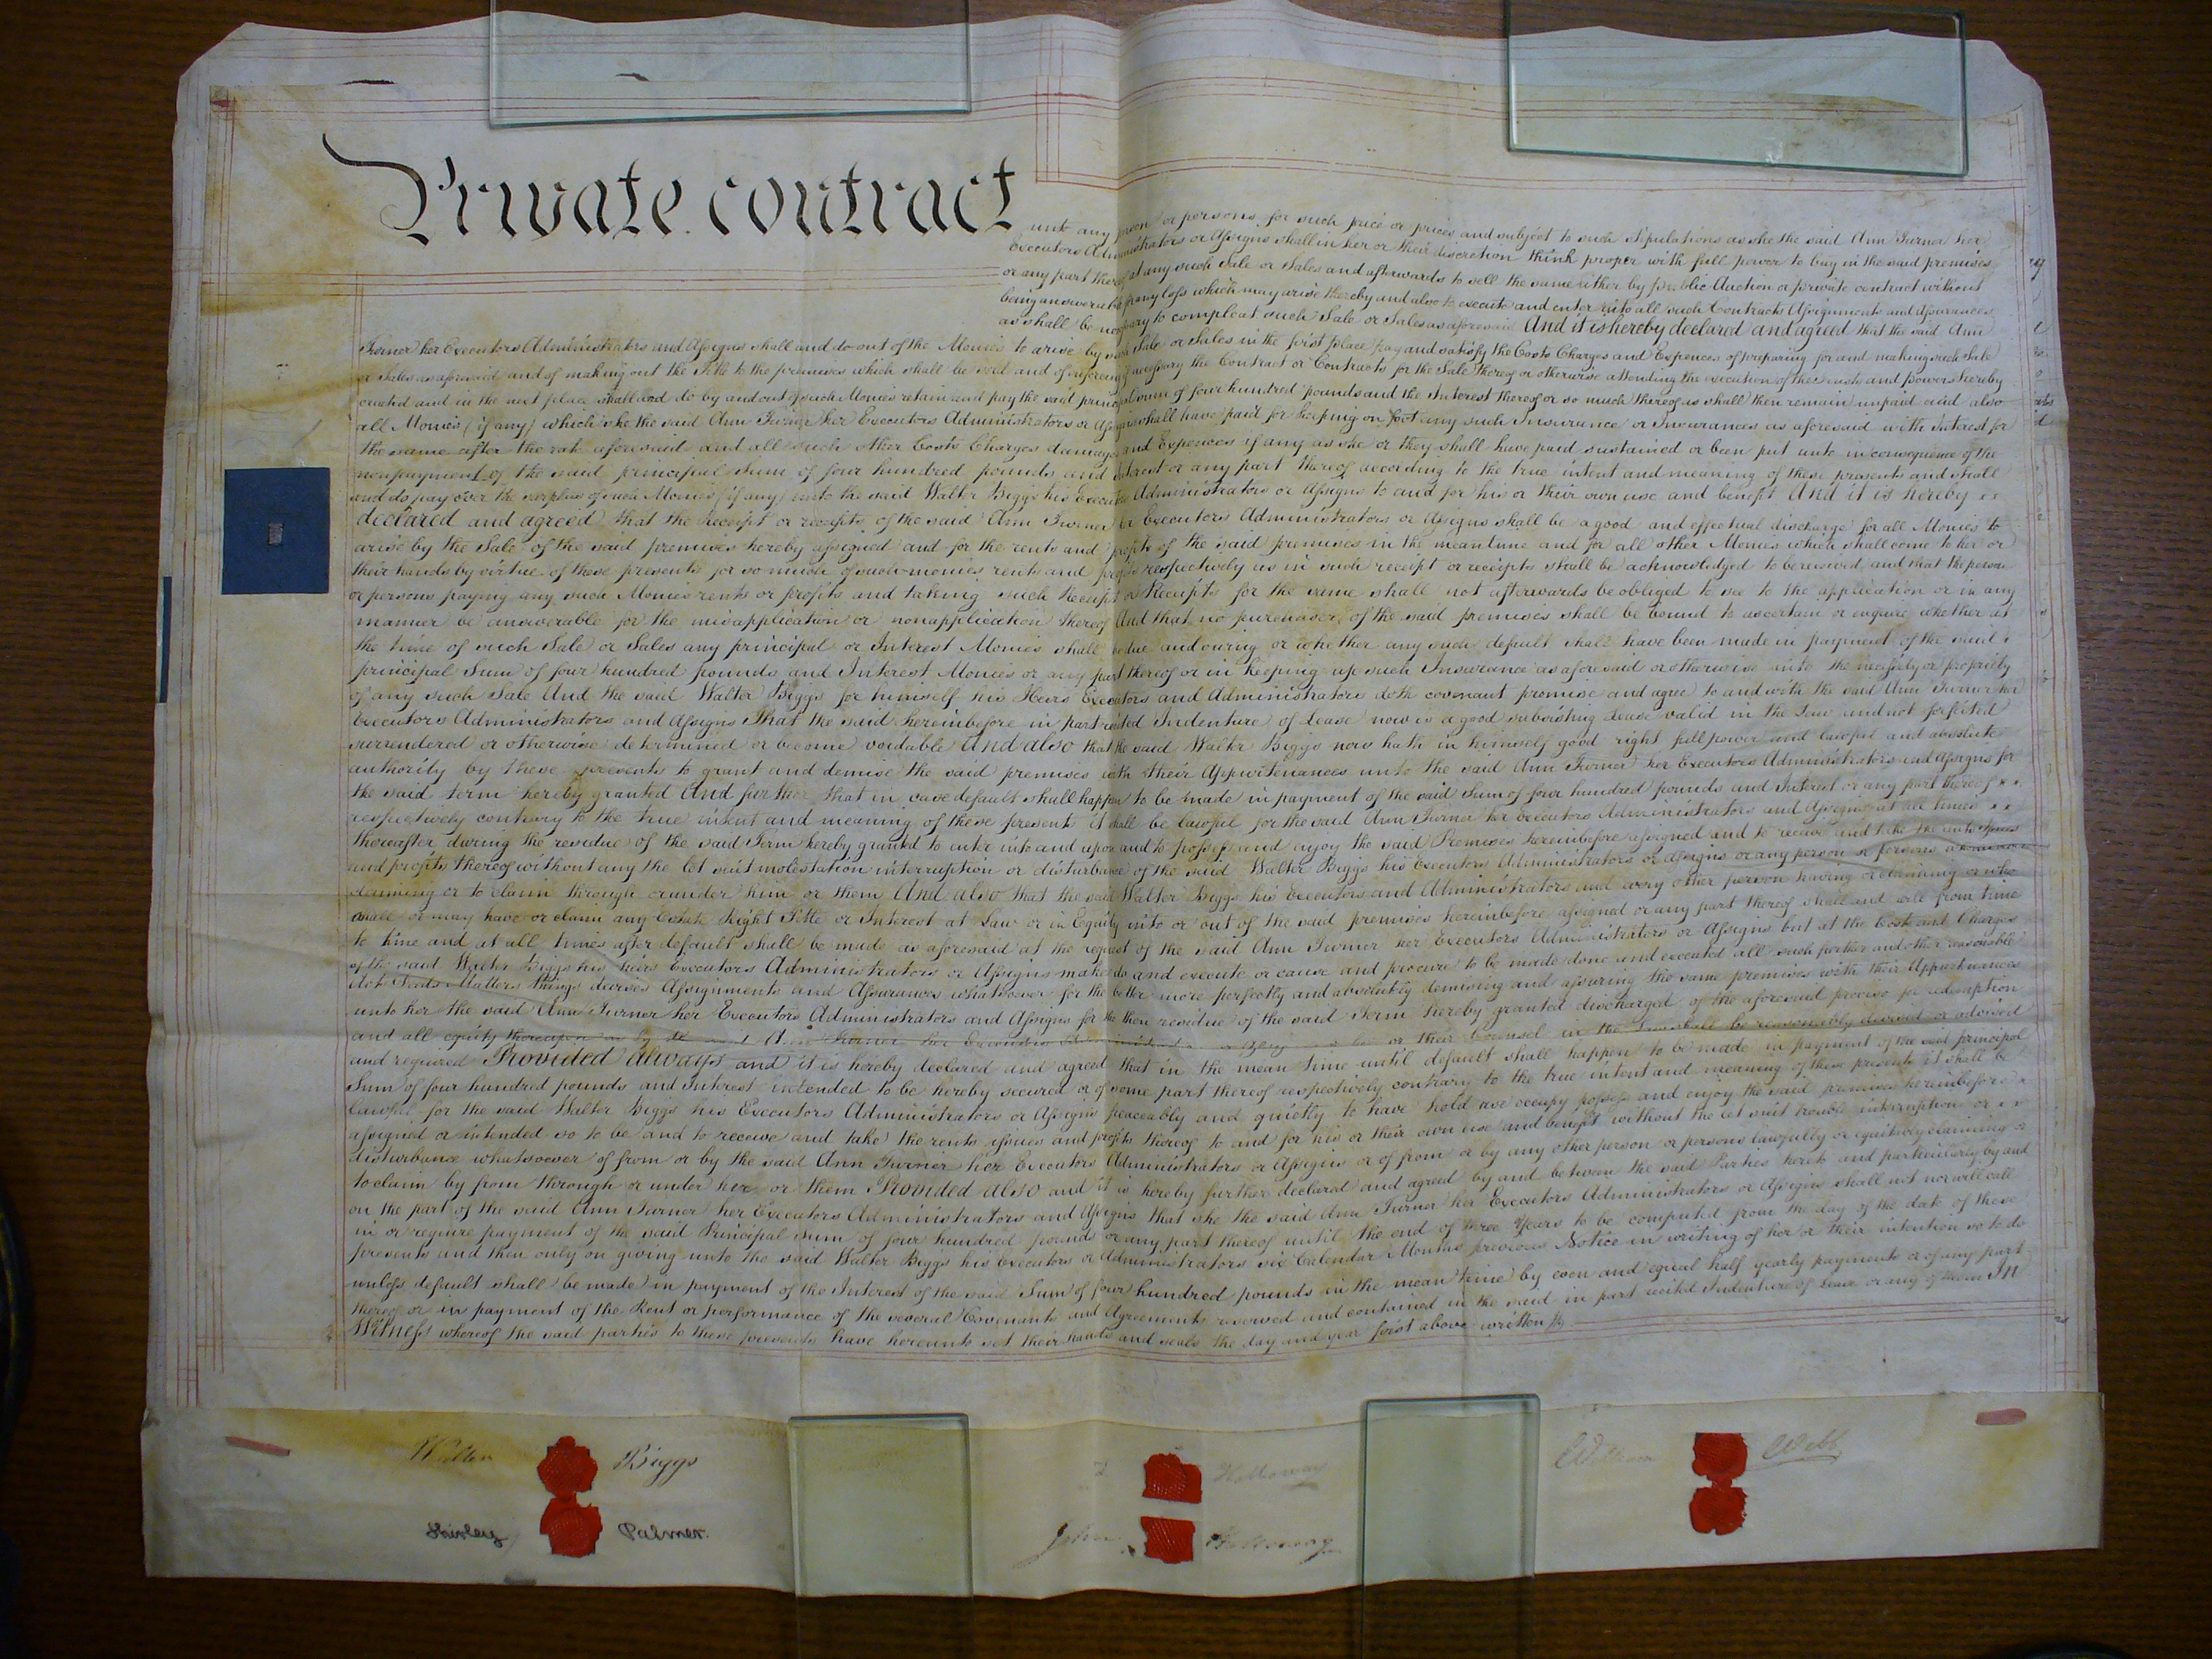 Private contract
unto any person or persons for such price or prices and subject to such Stipulations as she the said Ann Turner her
Executors Administrators or Assigns shall in her or their discretion think proper with full power to buy in the said premises
or any part thereof at any such Sale or Sales and afterwards to sell the same either by public Auction or private contract without
being answerable for any loss which may arise thereby and also to execute and enter into all such Contracts Assignments and Assurances
as shall be necessary to compleat such Sale or Sales as aforesaid And it is hereby declared and agreed that the said Ann
Turner her Executors Administrators and Assigns shall and do out of the Monies to arise by such Sale or Sales in the first place pay and satisfy the Costs Charges and Expences of preparing for and making such Sale
or Sales as aforesaid and of making out the Title to the premises which shall be sold and of enforcing if necessary the Contract or Contracts for the Sale thereof or otherwise attending the execution of the trusts and powers hereby
created and in the next place shall and do by and out of such Monies retain and pay the said principal sum of four hundred pounds and the Interest thereof or so much thereof as shall then remain unpaid and also
all Monies (if any) which she the said Ann Turner her Executors Administrators or Assigns shall have paid for keeping on foot any such Insurance or Insurances as aforesaid with Interest for
the same after the rate aforesaid and all such other Costs Charges damages and Expences if any as she or they shall have paid sustained or been put unto in consequence of the
nonpayment of the said principal Sum of four hundred pounds and Interest or any part thereof according to the true intent and meaning of these presents and shall
and do pay over the surplus of such Monies (if any) unto the said Walter Biggs his Executors Administrators or Assigns to and for his or their own use and benefit And it is hereby
declared and agreed that the Receipt or receipts of the said Ann Turner her Executors Administrators or Assigns shall be a good and effectual discharge for all Monies to
arise by the Sale of the said premises hereby assigned and for the rents and profits of the said premises in the meantime and for all other Monies which shall come to her or
their hands by virtue of these presents for so much of such monies rents and profits respectively as in such receipt or receipts shall be acknowledged to be received and that the person
or persons paying any such Monies rents or profits and taking such Receipt or Receipts for the same shall not afterwards be obliged to see to the application or in any
manner be answerable for the misapplication or nonapplication thereof And that no purchaser of the said premises shall be bound to ascertain or enquire whether at
the time of such Sale or Sales any principal or Interest Monies shall be due and owing or whether any such default shall have been made in payment of the said
principal Sum of four hundred pounds and Interest Monies or any part thereof or in keeping up such Insurance as aforesaid or otherwise into the necessity or propriety
of any such Sale And the said Walter Biggs for himself his Heirs Executors and Administrators doth covenant promise and agree to and with the said Ann Turner her
Executors Administrators and Assigns That the said hereinbefore in part recited Indenture of Lease now is a good subsisting Lease valid in the Law and not forfeited
surrendered or otherwise determined or become voidable And also that the said Walter Biggs now hath in himself good right full power and lawful and absolute
authority by these presents to grant and demise the said premises with their Appurtenances unto the said Ann Turner her Executors Administrators and Assigns for
the said term hereby granted And further that in case default shall happen to be made in payment of the said Sum of four hundred pounds and Interest or any part thereof
respectively contrary to the true intent and meaning of these presents it shall be lawful for the said Ann Turner her Executors Administrators and Assigns at all times
thereafter during the residue of the said Term hereby granted to enter into and upon and to possess and enjoy the said Premises hereinbefore assigned and to receive and take the rents issues
and profits thereof without any the let suit molestation interruption or disturbance of the said Walter Biggs his Executors Administrators or Assigns or any person or persons
claiming or to claim through or under him or them And also that the said Walter Biggs his Executors and Administrators and every other person having or claiming or who
shall or may have or claim any Estate Right Title or Interest at Law or in Equity into or out of the said premises hereinbefore assigned or any part thereof shall and will from time
to time and at all times after default shall be made as aforesaid at the request of the said Ann Turner her Executors Administrators or Assigns but at the Costs and Charges
of the said Walter Biggs his heirs Executors Administrators or Assigns make do and execute or cause and procure to be made done and executed all such further and other reasonable
Acts Deeds Matters things devises Assignments and Assurances whatsoever for the better more perfectly and absolutely demising and assuring the same premises with their Appurtenances
unto her the said Ann Turner her Executors Administrators and Assigns for the then residue of the said Term hereby granted discharged of the aforesaid proviso for redemption
and all equity thereupon as by the said Ann Turner her Executors or their Counsel in the Law shall be reasonably devised or advised
and required Provided always and it is hereby declared and agreed that in the mean time until default shall happen to be made in payment of the said principal
Sum of four hundred pounds and Interest intended to be hereby secured or of some part thereof respectively contrary to the true intent and meaning of these presents it shall be
lawful for the said Walter Biggs his Executors Administrators or Assigns peaceably and quietly to have hold use occupy possess and enjoy the said premises hereinbefore
assigned or intended so to be and to receive and take the rents issues and profits thereof to and for his or their own use and benefit without the let suit trouble interruption or
disturbance whatsoever of from or by the said Ann Turner her Executors Administrators or Assigns or of from or by any other person or persons lawfully or equitably claiming or
to claim by from through or under her or them Provided also and it is hereby further declared and agreed by and between the said Parties hereto and particularly by and
on the part of the said Ann Turner her Executors Administrators and Assigns that she the said Ann Turner her Executors Administrators or Assigns shall not nor will call
in or require payment of the said Principal Sum of four hundred pounds or any part thereof until the end of three Years to be computed from the day of the date of these
presents and then only on giving unto the said Walter Biggs his Executors or Administrators six Calendar Months previous Notice in writing of her or their intention so to do
unless default shall be made in payment of the Interest of the said Sum of four hundred pounds in the mean time by even and equal half yearly payments or of any part
thereof or in payment of the Rent or performance of the several Covenants and Agreements reserved and contained in the said in part recited Indenture of Lease or any of them In
Witness whereof the said parties to these presents have hereunto set their hands and seals the day and year first above written
Walter Biggs
Holloway
William Webb
Shirley Palmer.
John Holloway